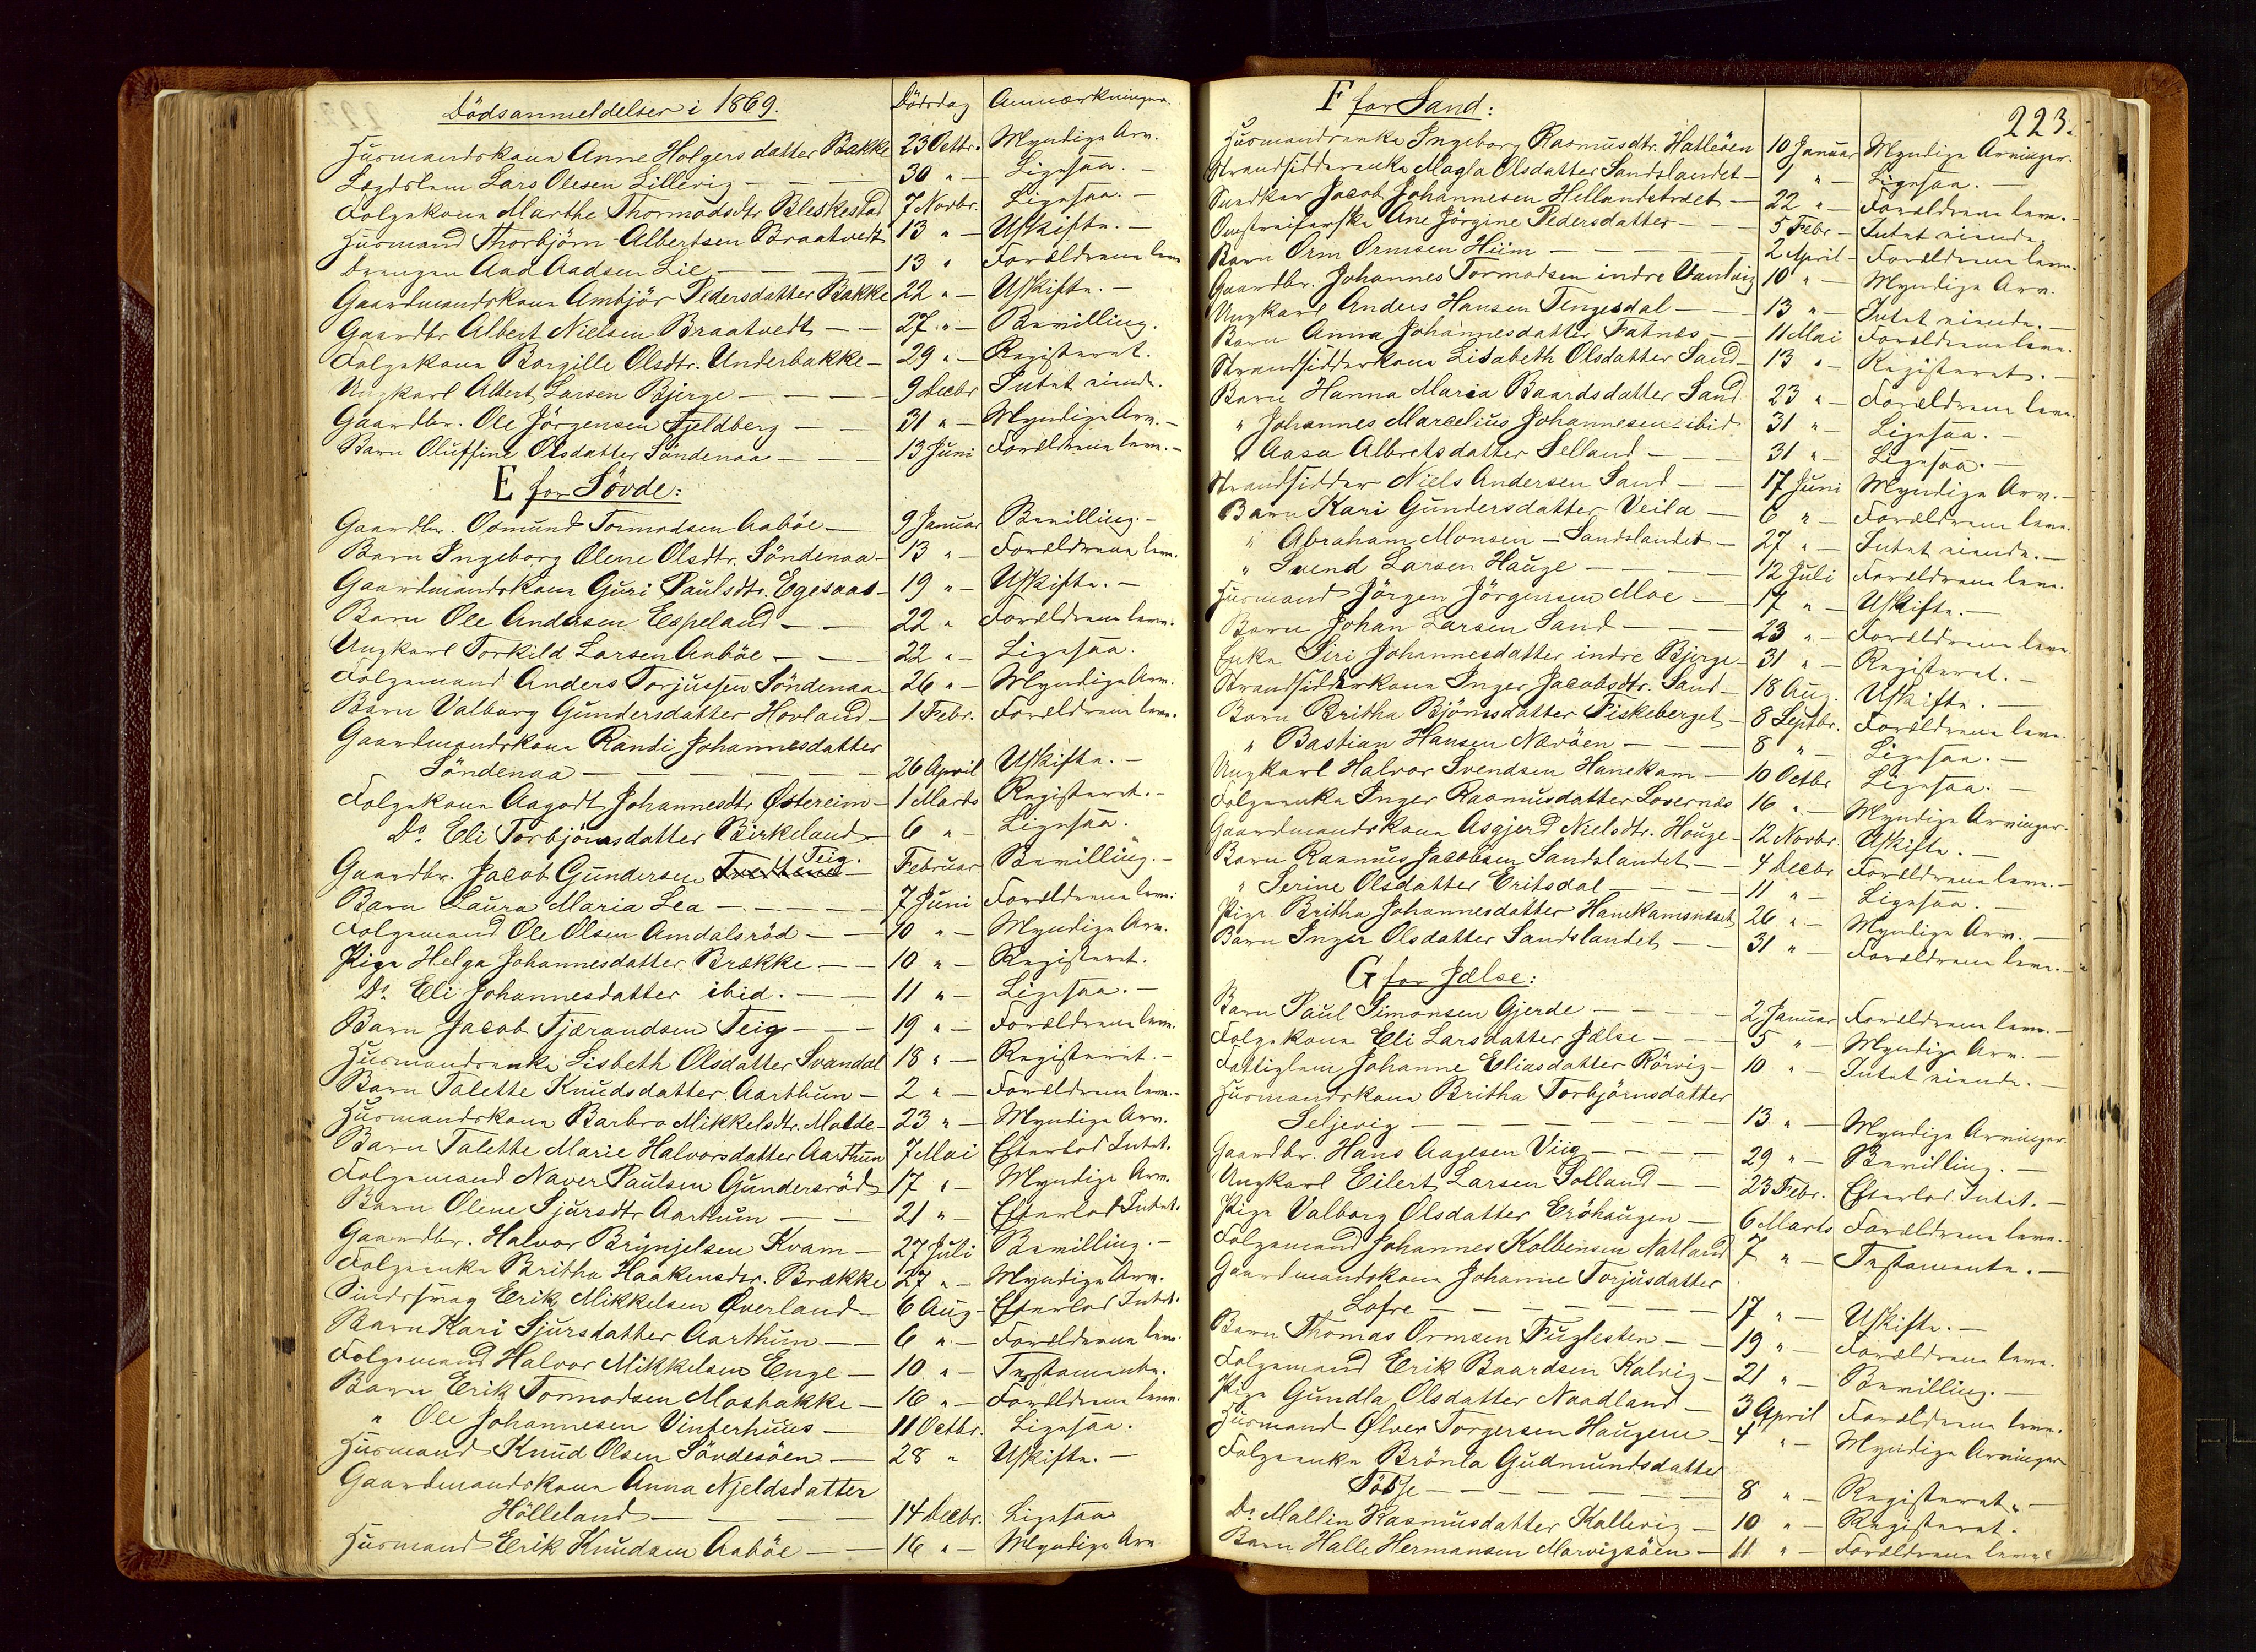 Dödsanmeldelser i 1869. Dödsdag Anmærkninger.
Husmandskone Anne Holgersdatter Bakke 23 Octbr. Myndige Arv.
Lægdslem Lars Olesen Lillevig — 30 " — Ligesaa. —
Folgekone Marthe Thormodsdtr Bleskestad 7 Novbr. Ligesaa. —
Husmand Thorbjörn Albertsen Braatvedt 13 " — Uskifte. —
Drengen Aad Aadsen Lie — 13 " Forældrene leve
Gaardmandskone Ambjör Pedersdatter Bakke 22 " — Uskifte. —
Gaardbr Albert Nielsen Braatvedt — — 27 " — Bevilling.
Folgekone Borgille Olsdtr. Underbakke — 29 " — Registeret.
Ungkarl Albert Larsen Bjerge — — — 9 Decbr Intet eiende.
Gaardbr. Ole Jörgensen Fjeldberg — — 31 " — Myndige Arv. —
Barn Oluffine Olsdatter Söndenaa — — 13 Juni Forældrene leve. —
E for Sövde:
Gaardbr. Osmund Tormodsen Aaböe — 9 Januar Bevilling. —
Barn Ingeborg Olene Olsdtr. Söndenaa — 13 " — Forældrene leve.
Gaardmandskone Guri Paulsdtr. Egesaas — 19 " — Uskifte. —
Barn Ole Andersen Espeland — — 22 " Forældrene leve.
Ungkarl Torkild Larsen Aaböe — — 22 " — Ligesaa.
Folgemand Anders Torjussen Söndenaa 26 " — Myndige Arv.
Barn Valborg Gundersdatter Hovland — 1 Febr. Forældrene leve.
Gaardmandskone Randi Johannesdatter
Söndenaa — — — — — 26 April Uskifte. —
Folgekone Aagodt Johannesdtr Østereim — 1 Marts Registeret. —
Do. Eli Torbjörnsdatter Birkeland 6 " — Ligesaa.
Gaardbr. Jacob Gundersen Teig. — Februar Bevilling. —
Barn Laura Maria Lea — — — 7 Juni Forældrene leve.
Folgemand Ole Olsen Amdalsröd — — 10 " — Myndige Arv.
Pige Helga Johannesdatter Brække — — 10 " — Registeret.
Do. Eli Johannesdatter ibid. — — 11 " — Ligesaa. —
Barn Jacob Tjærandsen Teig — — — 19 " — Forældrene leve.
Husmandsenke Lisbeth Olsdatter Svandal 18 " — Registeret. —
Barn Talette Knudsdatter Aarthun — 2 " — Forældrene leve. —
Husmandskone Barbro Mikkelsdtr. Molde — 23 " — Myndige Arv.
Barn Talette Marie Halvorsdatter Aarthun 7 Mai Efterlod Intet.
Folgemand Naver Paulsen Gundersröd 17 " — Myndige Arv.
Barn Olene Sjursdtr Aarthun — — 21 " — Efterlod Intet.
Gaardbr. Halvor Brynjelsen Kvam — 27 Juli Bevilling. —
Folgeenke Britha Haakensdtr. Brække 27 " — Myndige Arv.
Sindssvag Erik Mikkelsen Överland — 6 Aug — Efterlod Intet.
Barn Kari Sjursdatter Aarthun — — 6 " — Forældrene leve.
Folgemand Halvor Mikkelsen Enge — 10 " — Testamente.
Barn Erik Tormodsen Mosbakke — 16 " — Forældrene leve.
" Ole Johannesen Vinterhuus — 11 Octbr. Ligesaa.
Husmand Knud Olsen Sövdesöen — 28 " Uskifte. —
Gaardmandskone Anna Njeldsdatter
Hölleland — — — — 14 Decbr. Ligesaa
Husmand Erik Knudsen Aaböe — — 16 " — Myndige Arv
223.
F for Sand:
Husmandsenke Ingeborg Rasmusdtr. Hatleöen 10 Januar Myndige Arvinger.
Strandsidderenke Magla Olsdatter Sandslandet — 9 " — Ligesaa. —
Jacob Johannesen Hellandstrædet — 22 " — Forældrene leve. —
Omstreiferske Ane Jörgine Pedersdatter — — 5 Febr — Intet eiende.
Barn Orm Ormsen Hiim — — — 2 April — Forældrene leve.
Gaardbr. Johannes Tormodsen indre Vanvig 10 " — Myndige Arv.
Ungkarl Anders Hansen Tengesdal — — 13 " — Intet eiende. —
Barn Anna Johannesdatter Fatnes — — 11 Mai Forældrene leve.
Strandsidderkone Lisabeth Olsdatter Sand — 13 " — Registeret. —
Barn Hanna Maria Baardsdatter Sand 23 " — Forældrene leve.
" Johannes Marcelius Johannesen ibid 31 " — Ligesaa. —
" Aasa Albretsdatter Selland — — 31 " — Ligesaa. —
Strandsidder Niels Andersen Sand — — 17 Juni Myndige Arv. —
Barn Kari Gundersdatter Veila — 6 " — Forældrene leve.
" Abraham Monsen — Sandslandet — 27 " — Intet eiende. —
" Svend Larsen Hauge — — — 12 Juli Forældrene leve.
Husmand Jörgen Jörgensen Moe — — 17 " — Uskifte. —
Barn Johan Larsen Sand — — — 23 " — Forældrene leve.
Enke Siri Johannesdatter indre Bjerge — 31 " — Registeret. —
Strandsidderkone Inger Jacobsdtr. Sand — 18 Aug. Uskifte. —
Barn Britha Björnsdatter Fiskeberget — 8 Septbr. Forældrene leve.
" Bastian Hansen Nævöen — — — 8 " — Ligesaa. —
Ungkarl Halvor Svendsen Hanekam — 10 Octbr Ligesaa. —
Folgeenke Inger Rasmusdatter Lovernes 16 " — Myndige Arvinger.
Gaardmandskone Asgjerd Nielsdtr. Houge — 12 Novbr. Uskifte. —
Barn Rasmus Jacobsen Sandslandet — — 4 Decbr Forældrene leve. —
" Serine Olsdatter Eritsdal — — — 11 " — Ligesaa. —
Pige Britha Johannesdatter Hanekamsneset 26 " — Myndige Arv. —
Barn Inger Olsdatter Sandslandet — — 31 " — Forældrene leve. —
G for Jælse:
Barn Paul Simonsen Gjerde — — — 2 Januar Forældrene leve. —
Folgekone Eli Larsdatter Jælse — — 5 " — Myndige Arv. —
Fattiglem Johanne Eliasdatter Rörvig — 10 " — Intet eiende. —
Husmandskone Britha Torbjörnsdatter
Seljevig — — — — — 13 " — Myndige Arvinger.
Gaardbr. Hans Aagesen Viig — — — 29 " — Bevilling. —
Ungkarl Eilert Larsen Solland — — 23 Febr. Efterlod Intet. —
Pige Valborg Olsdatter Eröhaugen — 6 Marts Forældrene leve. —
Folgemand Johannes Kolbensen Natland 7 " — Testamente. —
Gaardmandskone Johanne Torjusdatter
Lofre — — — — — 17 " — Uskifte. —
Barn Thomas Ormsen Fuglesten — — 19 " — Forældrene leve.
Folgemand Erik Baardsen Kalvig — 21 " — Bevilling. —
Pige Gundla Olsdatter Naadland — 3 April Forældrene leve.
Husmand Ølver Torgersen Haugene — 4 " — Myndige Arvinger
Folgeenke Brönla Gudmundsdatter
— — — — — 8 " — Registeret. —
Do. Mallin Rasmusdatter Kallevig — 10 " — Registeret.
Barn Halle Hermansen Marvigsöen — 11 " — Forældrene leve